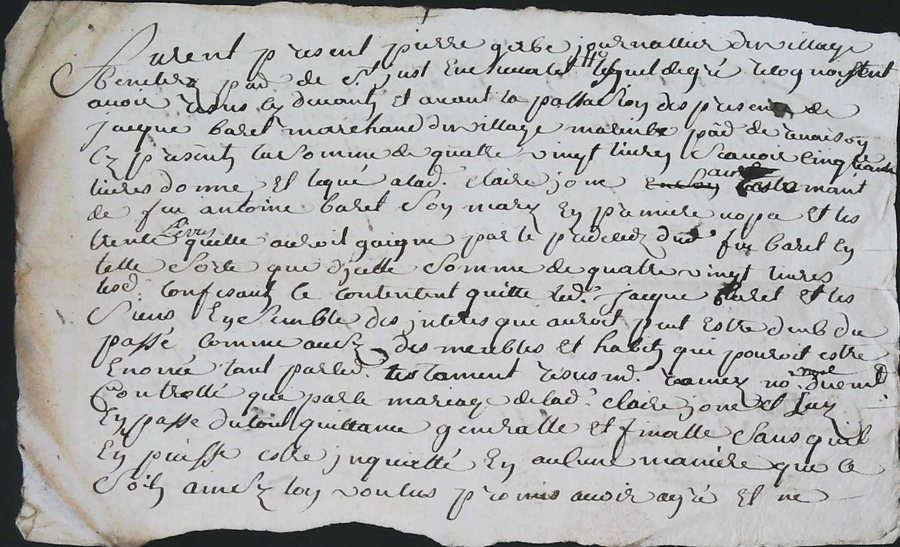 furent present pierre gerbe journallier du village
pad. de St just en lequel de gré recognoissent
avoir receus cy devant et avant la passation des presentes de
jacque barel marchand du village pad. de renaison
cy present la somme de quatre vingt livres scavoir cinquante
livres donne et legué a lad. claire jone par testemant
de feu antoine barel son mary en premiere nopse et les
trente livres quelle auroit gaigne par le predeces dud. feu barel en
telle sorte que dicelle somme de quatre vingt livres
lesd. confesants ce contentent quitte led. jacque barel et les
siens ensemble des interes que auroit peut estre deub du
passé comme aussy des meubles et habits qui pouroit estre
enoncé tant par led. testament receus md. ramey no.re royal
controllé que par le mariage de lad. claire jone et luy
en passe du tout quittance generalle et finalle sans quil
en puisse estre inquietté en aulcune maniere que ce
soit ainsy lon voulus promis avoir agré et ne